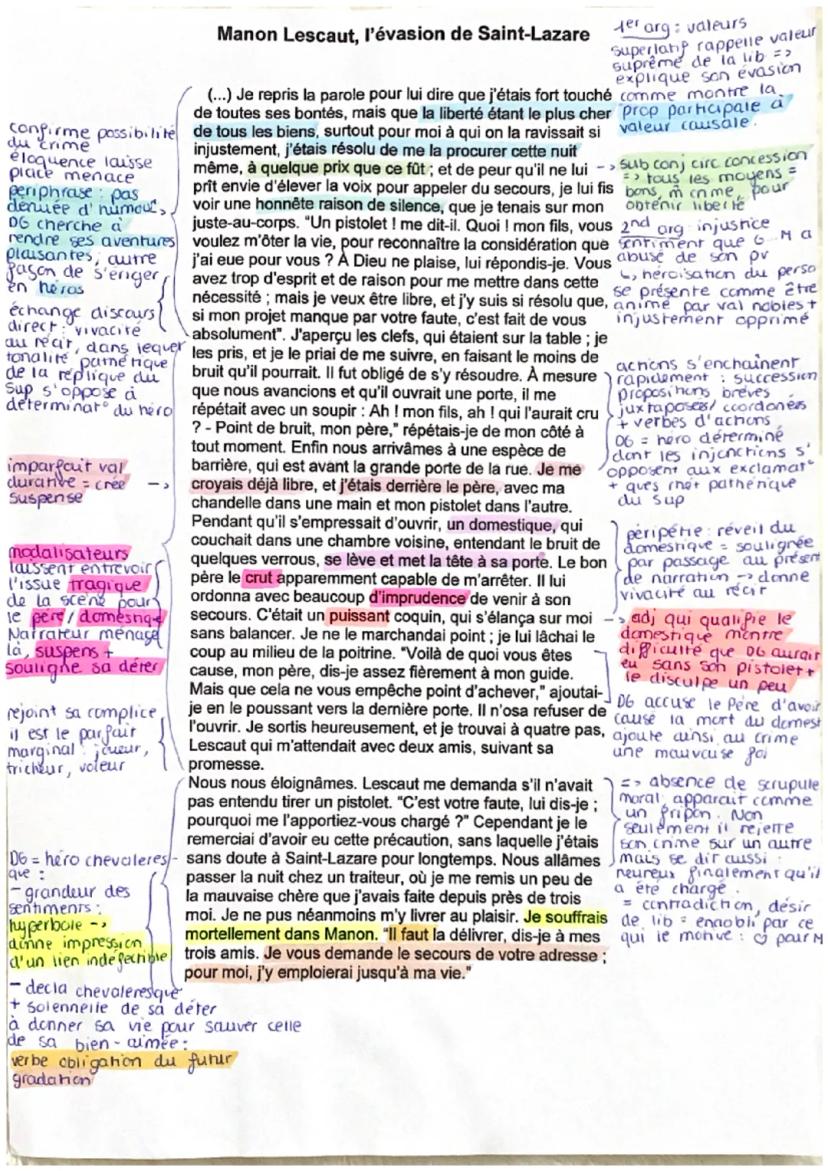 Manon Lescaut, l'évasion de Saint-Lazare
1er arg : valeurs
superlatif rappelle valeur
suprême de la lib =>
explique son évasion
comme montre la
prop participale à
valeur causale.
-> sub conj circ concession
=> tous les moyens =
bons, m crime, pour
obtenir liberté
2nd arg injustice
sentiment que G... M a
abusé de son pv
↳ héroïsation du perso
se présente comme être
animé par val nobles +
injustement opprimé
actions s'enchaînent
rapidement : succession
propositions brèves
juxtaposées/coordonées
+ verbes d'actions
DG = héro déterminé
dont les injonctions s'
opposent aux exclamat°
+ ques rhét pathétique
du Sup
péripétie : réveil du
domestique = soulignée
par passage au présent
de narration -> donne
vivacité au récit
-> adj qui qualifie le
domestique montre
difficulté que DG aurait
eu sans son pistolet +
le disculpe un peu
DG accuse le Père d'avoir
causé la mort du domest
ajoute ainsi au crime
une mauvaise foi
=> absence de scrupule
moral, apparaît comme
un fripon. Non
seulement il rejette
son crime sur un autre
mais se dit aussi :
heureux finalement qu'il
a été chargé.
= contradiction, désir
de lib = ennobli par ce
qui le motive : ♡ pour M
(...) Je repris la parole pour lui dire que j'étais fort touché
de toutes ses bontés, mais que la liberté étant le plus cher
de tous les biens, surtout pour moi à qui on la ravissait si
injustement, j'étais résolu de me la procurer cette nuit
même, à quelque prix que ce fût ; et de peur qu'il ne lui
prît envie d'élever la voix pour appeler du secours, je lui fis
voir une honnête raison de silence, que je tenais sur mon
juste-au-corps. "Un pistolet ! me dit-il. Quoi ! mon fils, vous
voulez m'ôter la vie, pour reconnaître la considération que
j'ai eue pour vous ? À Dieu ne plaise, lui répondis-je. Vous
avez trop d'esprit et de raison pour me mettre dans cette
nécessité ; mais je veux être libre, et j'y suis si résolu que,
si mon projet manque par votre faute, c'est fait de vous
absolument". J'aperçu les clefs, qui étaient sur la table ; je
les pris, et je le priai de me suivre, en faisant le moins de
bruit qu'il pourrait. Il fut obligé de s'y résoudre. À mesure
que nous avancions et qu'il ouvrait une porte, il me
répétait avec un soupir : Ah ! mon fils, ah ! qui l'aurait cru
? - Point de bruit, mon père," répétais-je de mon côté à
tout moment. Enfin nous arrivâmes à une espèce de
barrière, qui est avant la grande porte de la rue. Je me
croyais déjà libre, et j'étais derrière le père, avec ma
chandelle dans une main et mon pistolet dans l'autre.
Pendant qu'il s'empressait d'ouvrir, un domestique, qui
couchait dans une chambre voisine, entendant le bruit de
quelques verrous, se lève et met la tête à sa porte. Le bon
père le crut apparemment capable de m'arrêter. Il lui
ordonna avec beaucoup d'imprudence de venir à son
secours. C'était un puissant coquin, qui s'élança sur moi
sans balancer. Je ne le marchandai point ; je lui lâchai le
coup au milieu de la poitrine. "Voilà de quoi vous êtes
cause, mon père, dis-je assez fièrement à mon guide.
Mais que cela ne vous empêche point d'achever," ajoutai-
je en le poussant vers la dernière porte. Il n'osa refuser de
l'ouvrir. Je sortis heureusement, et je trouvai à quatre pas,
Lescaut qui m'attendait avec deux amis, suivant sa
promesse.
Nous nous éloignâmes. Lescaut me demanda s'il n'avait
pas entendu tirer un pistolet. "C'est votre faute, lui dis-je ;
pourquoi me l'apportiez-vous chargé ?" Cependant je le
remerciai d'avoir eu cette précaution, sans laquelle j'étais
sans doute à Saint-Lazare pour longtemps. Nous allâmes
passer la nuit chez un traiteur, où je me remis un peu de
la mauvaise chère que j'avais faite depuis près de trois
moi. Je ne pus néanmoins m'y livrer au plaisir. Je souffrais
mortellement dans Manon. "Il faut la délivrer, dis-je à mes
trois amis. Je vous demande le secours de votre adresse ;
pour moi, j'y emploierai jusqu'à ma vie."
confirme possibilité
du crime
éloquence laisse
place menace
périphrase : pas
dénuée d'humour,
DG cherche à
rendre ses aventures
plaisantes, autre
façon de s'ériger
en héros
échange discours
direct : vivacité
au récit, dans lequel
tonalité pathétique
de la réplique du
Sup s'oppose à
déterminat° du héro
imparfait val
durative = crée ->
suspense
modalisateurs
laissent entrevoir
l'issue tragique
de la scène pour
le père / domestiq
Narrateur ménage
là, suspens +
souligne sa déter
rejoint sa complice
il est le parfait
marginal : joueur,
tricheur, voleur
DG = héro chevaleres-
que :
- grandeur des
sentiments :
hyperbole ->
donne impression
d'un lien indéfectible
- decla chevaleresque
+ solennelle de sa déter
à donner sa vie pour sauver celle
de sa bien-aimée :
verbe obligation du futur
gradation